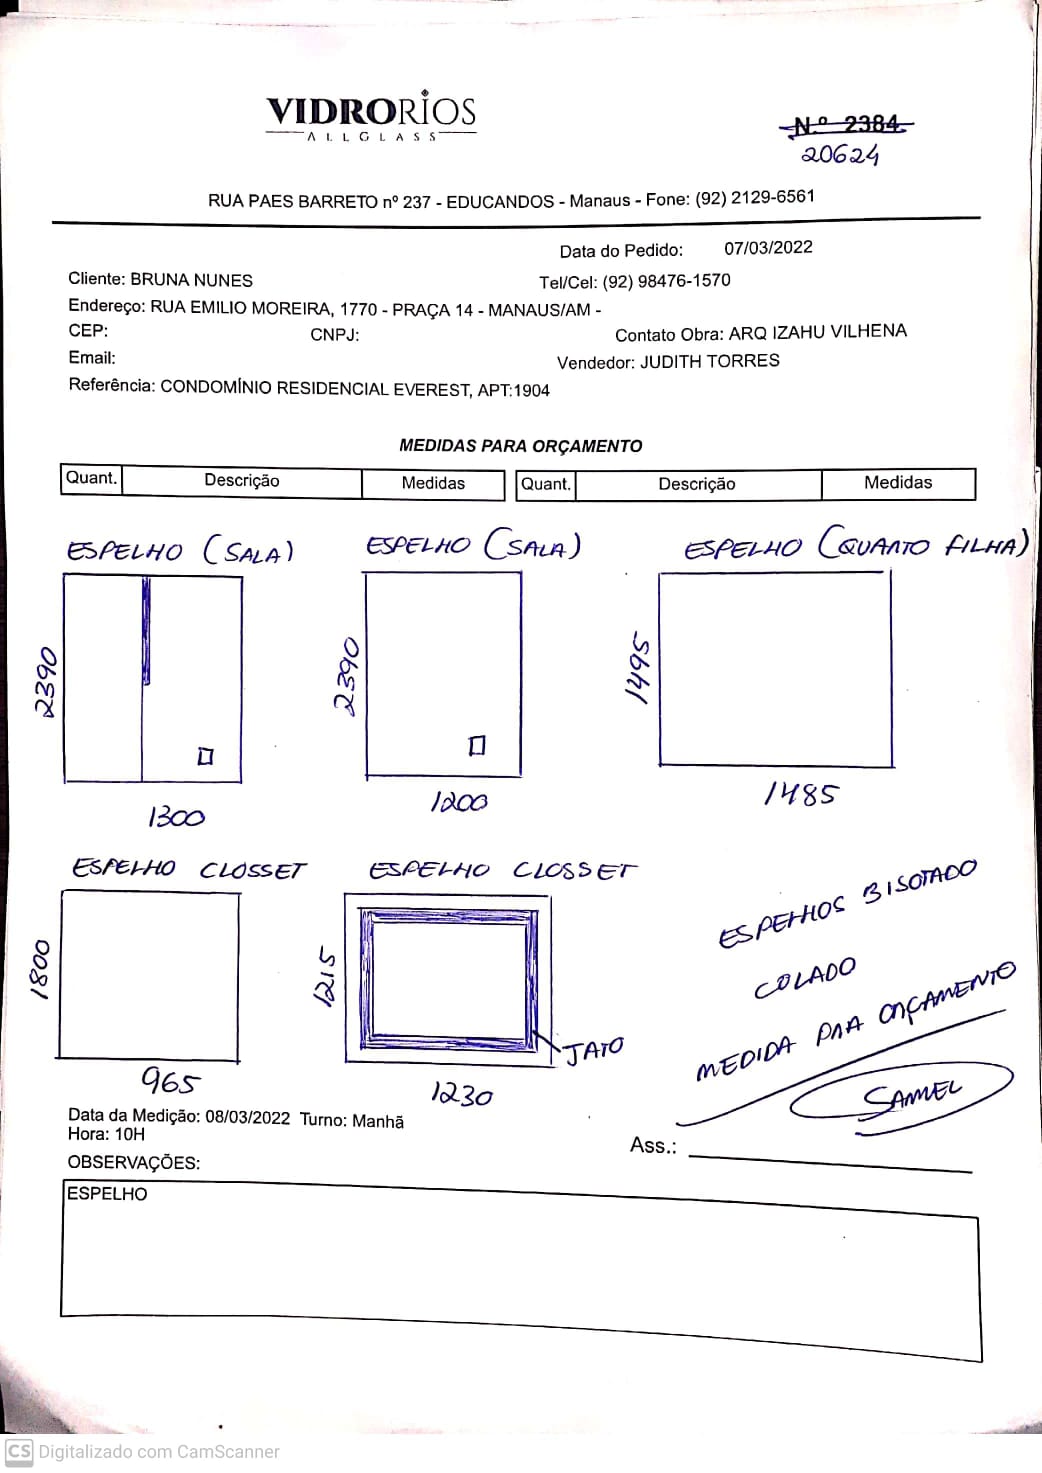 VIDRORÍOS
ALLGLASS
N.º 2384
20624
RUA PAES BARRETO nº 237 - EDUCANDOS - Manaus - Fone: (92) 2129-6561
Data do Pedido: 07/03/2022
Cliente: BRUNA NUNES Tel/Cel: (92) 98476-1570
Endereço: RUA EMILIO MOREIRA, 1770 - PRAÇA 14 - MANAUS/AM -
CEP: CNPJ: Contato Obra: ARQ IZAHU VILHENA
Email: Vendedor: JUDITH TORRES
Referência: CONDOMÍNIO RESIDENCIAL EVEREST, APT:1904
MEDIDAS PARA ORÇAMENTO
Quant. Descrição Medidas Quant. Descrição Medidas
ESPELHO (SALA) ESPELHO (SALA) ESPELHO (QUARTO FILHA)
2390 2390 1495
1300 1200 1485
ESPELHO CLOSSET ESPELHO CLOSSET
1800 1215
JATO
965 1230
ESPELHOS BISOTADO
COLADO
MEDIDA PRA ORÇAMENTO
SAMUEL
Data da Medição: 08/03/2022 Turno: Manhã
Hora: 10H
Ass.:
OBSERVAÇÕES:
ESPELHO
CS Digitalizado com CamScanner